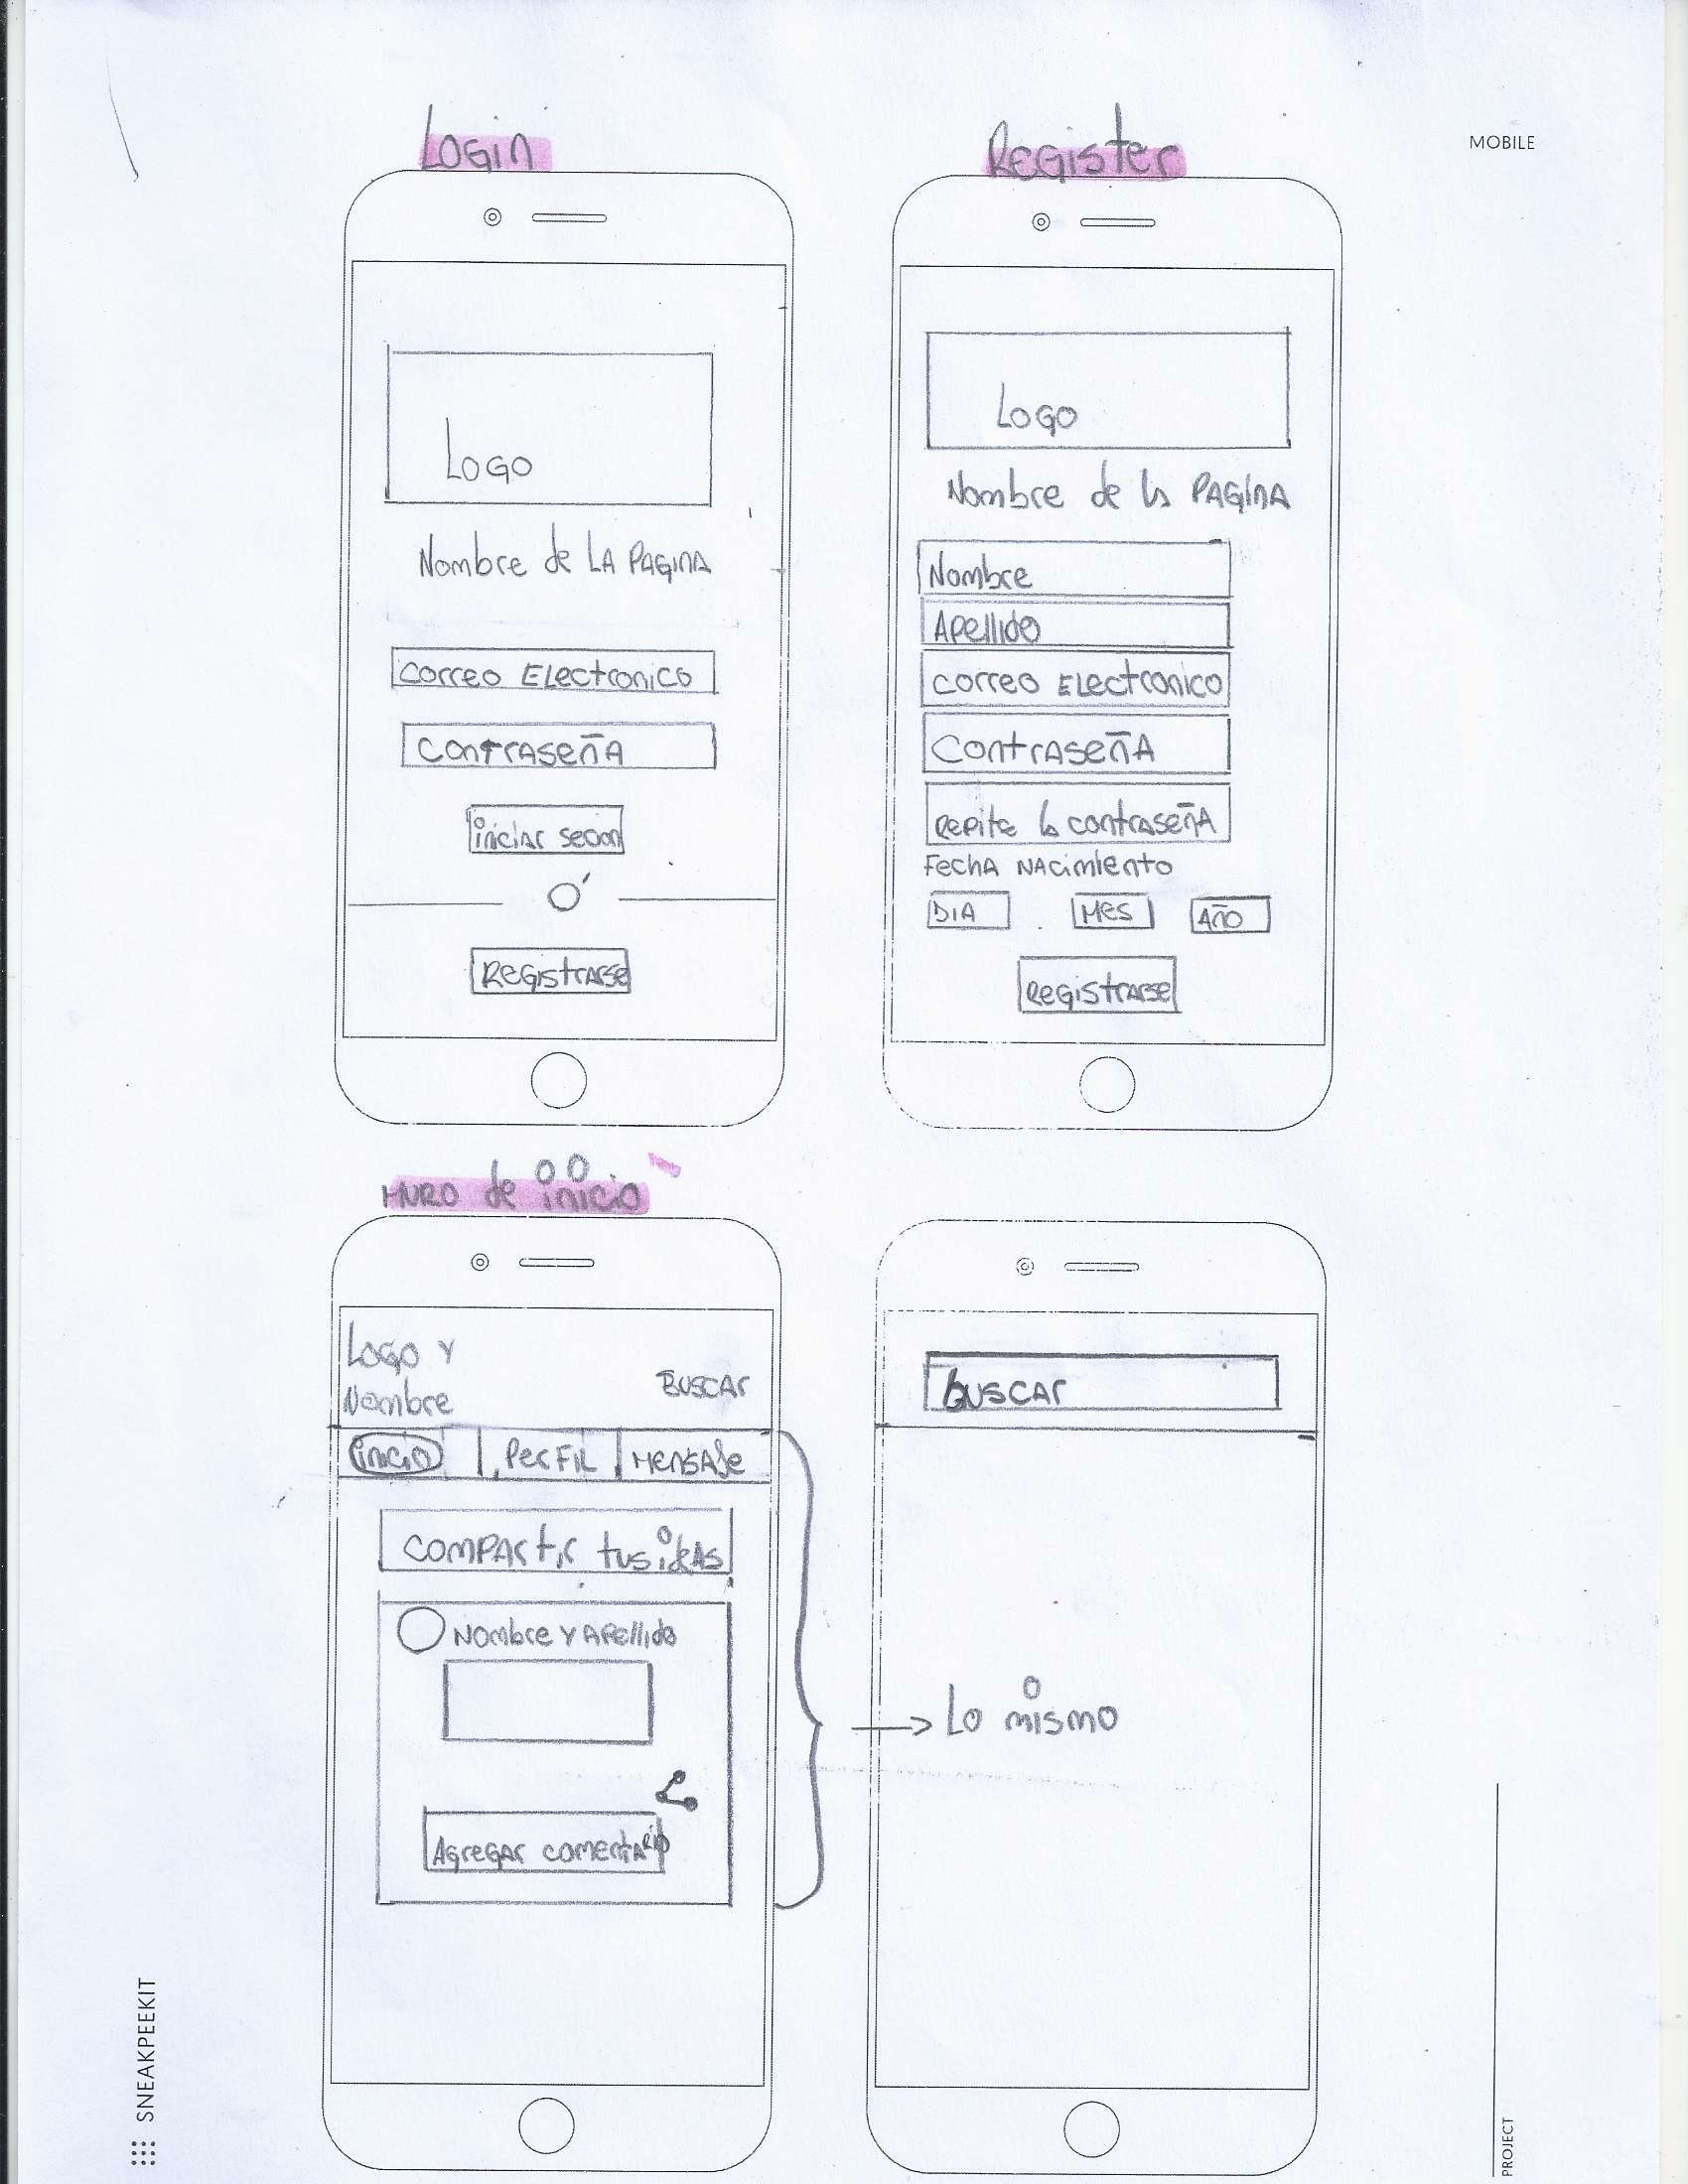 MOBILE
Login
LOGO
Nombre de LA PAGINA
Correo Electronico
Contraseña
iniciar secion
Ó
Registrarse
Register
LOGO
Nombre de la PAGINA
Nombre
Apellido
Correo Electronico
Contraseña
Repite la contraseña
Fecha Nacimiento
DIA MES AÑO
Registrarse
Muro de inicio
Logo y
Nombre
Buscar
inicio Perfil Mensaje
Compartir tus ideas
Nombre y Apellido
Agregar comentario
Buscar
Lo mismo
SNEAKPEEKIT
PROJECT